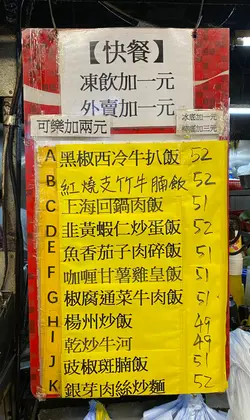 【快餐】
凍飲加一元
外賣加一元
可樂加兩元
冰底加一元
A 黑椒西冷牛扒飯 52
B 紅燒支竹牛腩飯 52
C 上海回鍋肉飯 51
D 韭黃蝦仁炒蛋飯 52
E 魚香茄子肉碎飯 51
F 咖喱甘薯雞皇飯 51
G 椒腐通菜牛肉飯 51
H 楊州炒飯 49
I 乾炒牛河 49
J 豉椒斑腩飯 51
K 銀芽肉絲炒麵 52